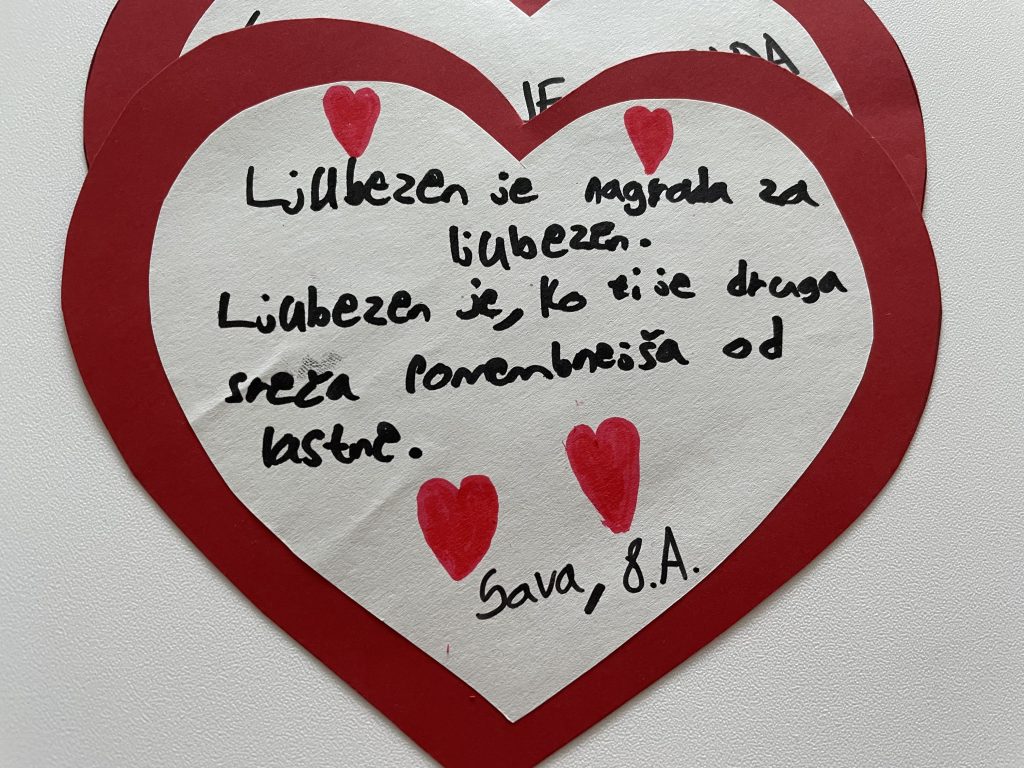 JE
Ljubezen je nagrada za
ljubezen.
Ljubezen je, ko ti je druga
sreča pomembnejša od
lastne.
Sava, 8.A.